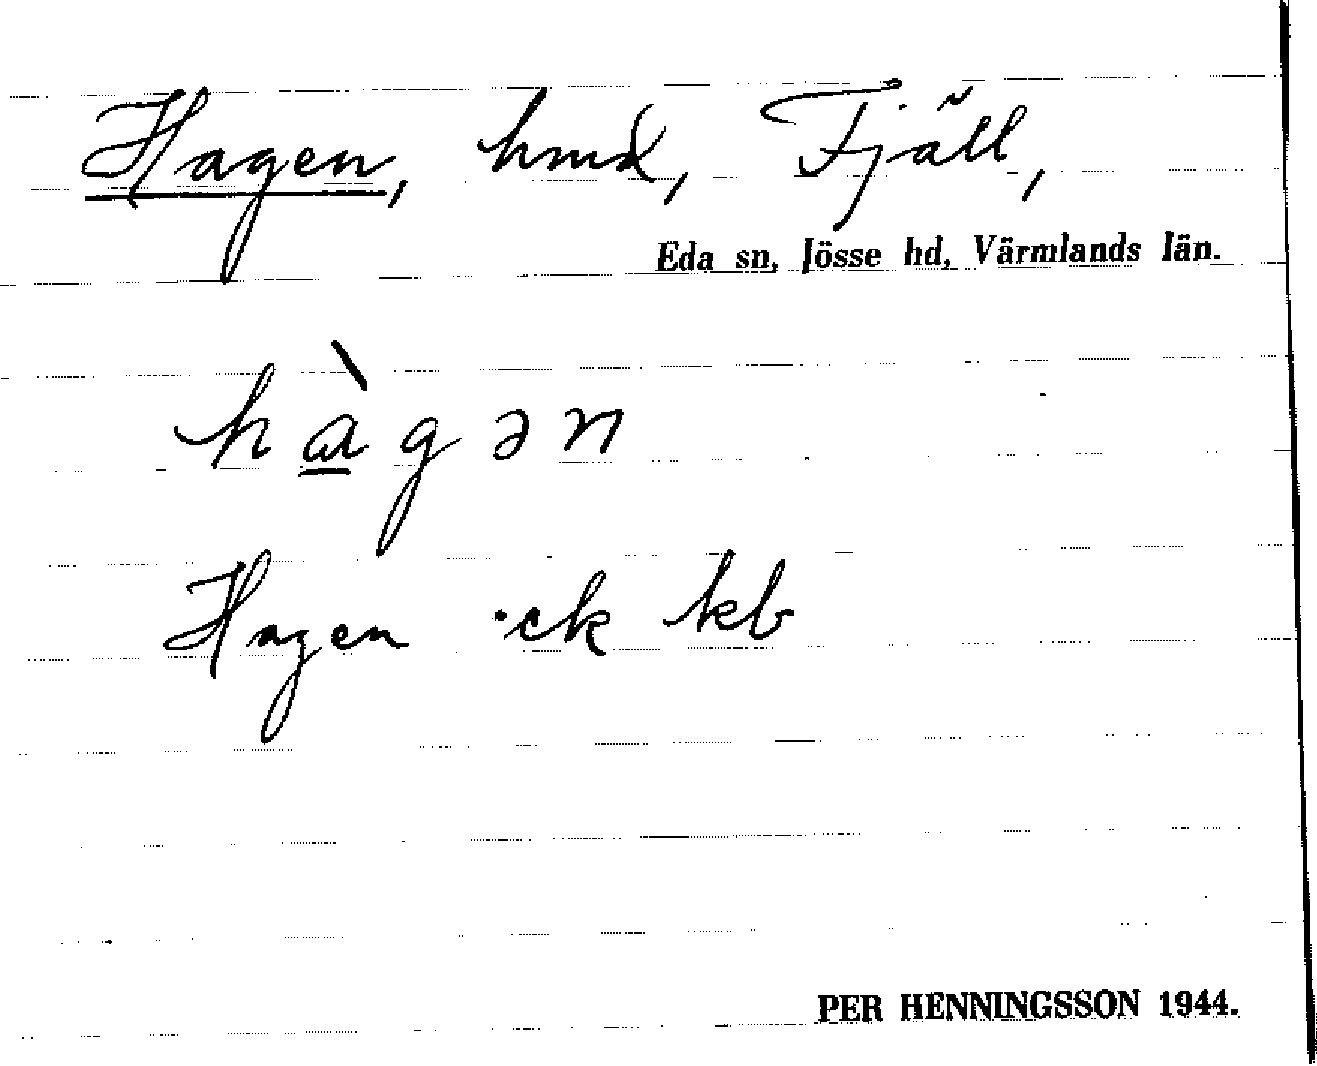 Hagen, hmd, Fjäll,
Eda sn, Jösse hd, Värmlands län.
hàgən
Hagen ·ck kb
PER HENNINGSSON 1944.